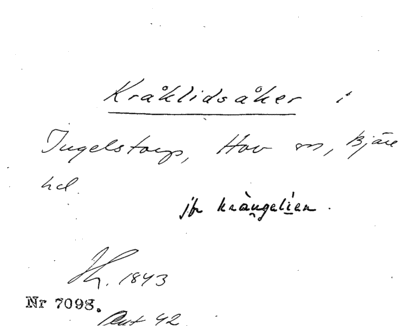 Kråklidsåker i
Ingelstorp, Hov sn, Bjäre
hd.
jfr krångelien.
Hz. 1843
Nr 7098.
Avt 42